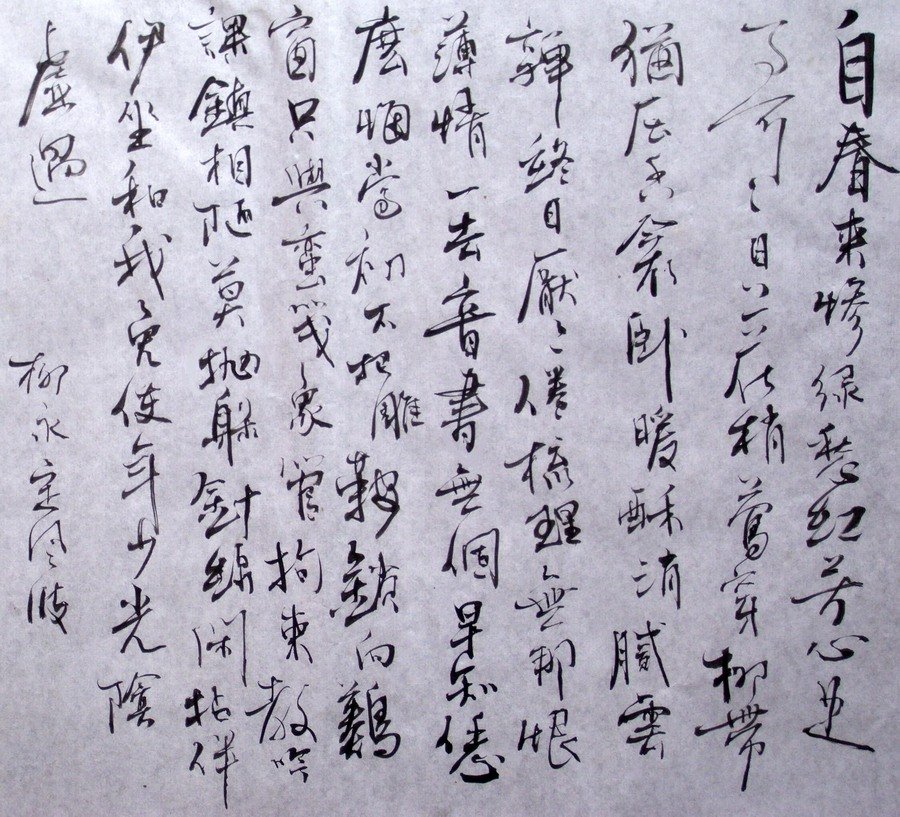 自春來慘綠愁紅芳心是
事可可日上花梢鶯穿柳帶
猶压香衾卧暖酥消膩雲
嚲終日厭厭倦梳理無那恨
薄情一去音書無個早知恁
麽悔當初不把雕鞍鎖向鷄
窗只與蠻箋象管拘束教吟
課鎮相隨莫抛躲針線閑拈伴
伊坐和我免使年少光陰
虚過
柳永定風波